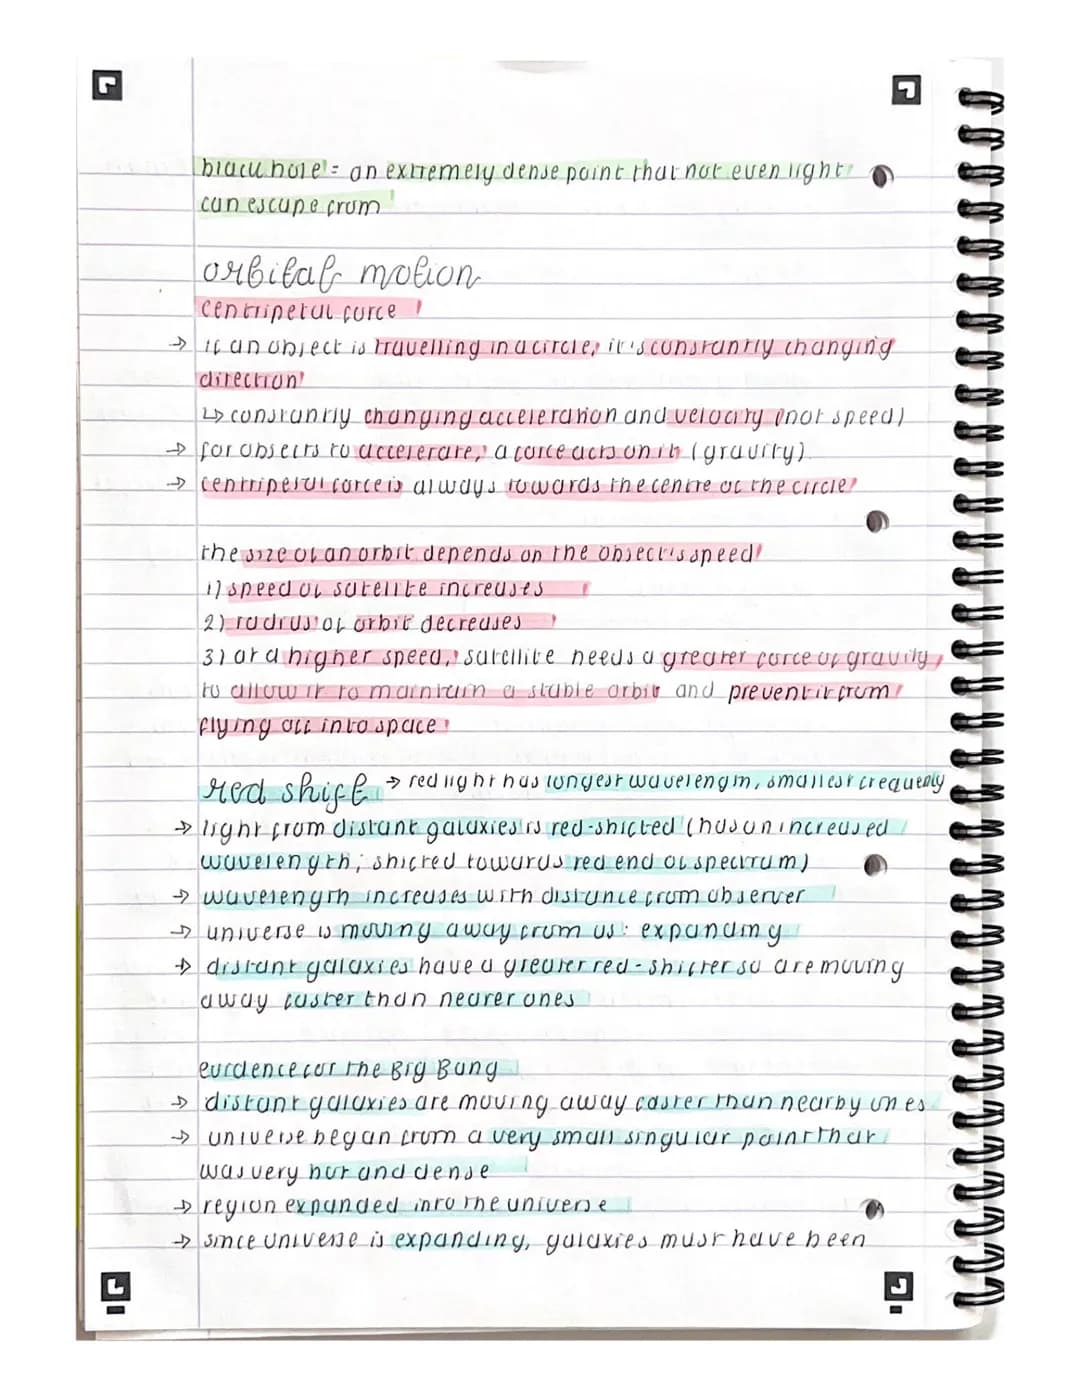 black hole = an extremely dense point that not even light
can escape from
orbital motion
centripetal force
→ if an object is travelling in a circle, it's constantly changing
direction
↳ constantly changing acceleration and velocity (not speed)
→ for objects to accelerate, a force acts on it (gravity)
→ centripetal force is always towards the centre of the circle
the size of an orbit depends on the object's speed
1) speed of satellite increases
2) radius of orbit decreases
3) at a higher speed, satellite needs a greater force of gravity,
to allow it to maintain a stable orbit and prevent it from
flying off into space
red shift → red light has longest wavelength, smallest frequency
→ light from distant galaxies is red-shifted (has an increased
wavelength; shifted towards red end of spectrum)
→ wavelength increases with distance from observer
→ universe is moving away from us: expanding
→ distant galaxies have a greater red-shifter so are moving
away faster than nearer ones
evidence for the Big Bang
→ distant galaxies are moving away faster than nearby ones
→ universe began from a very small singular point that
was very hot and dense
→ region expanded into the universe
→ since universe is expanding, galaxies must have been